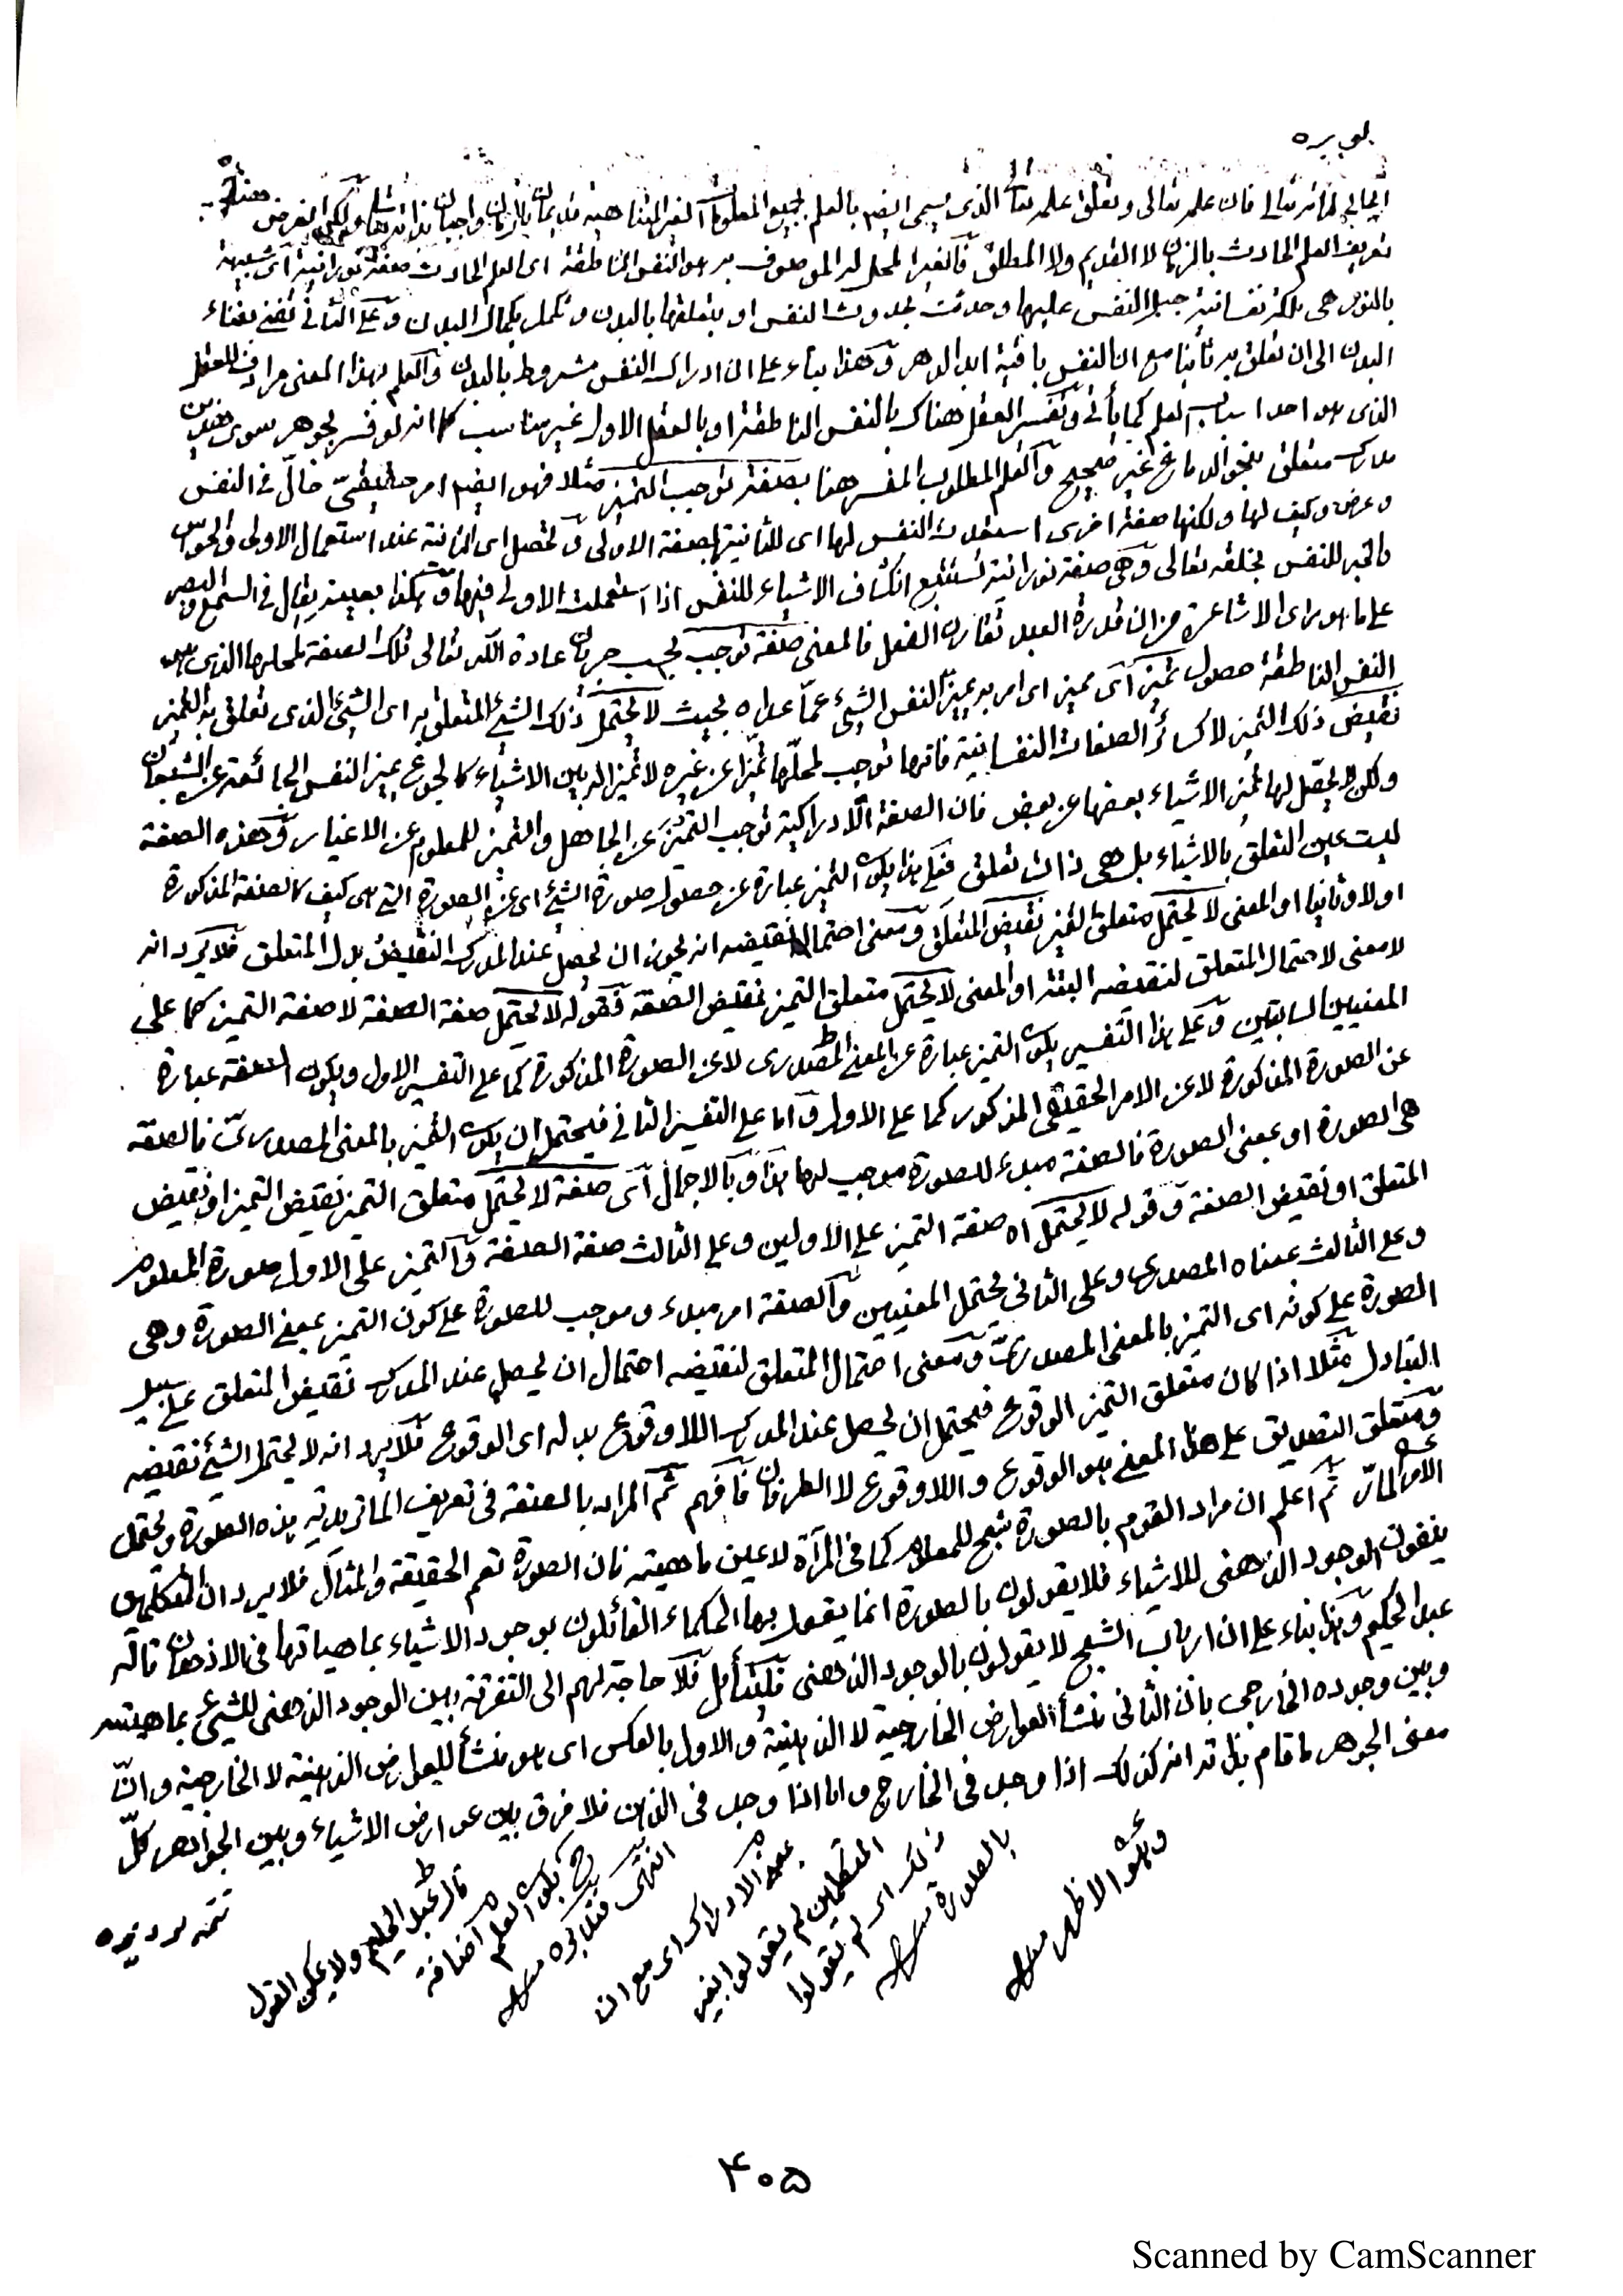 فان علمه تعالى وتعلق علمه تعالى الذي يسمى ايضا بالعلم بجميع المعلومات الغير المتناهية
تعريف العلم الحادث بالزمان لا القديم ولا المطلق فالغير المحل له الموصوف به هو النفس الناطقة اى العلم الحادث صفة نورانية اى شبيهة
بالنور هى ملكة نفسانية جبل النفس عليها وحدثت بحدوث النفس او بتعلقها بالبدن وتكمل بكمال البدن وعلى الثانى تفنى بفناء
البدن الى ان تعلق به ثانيا مع ان النفس باقية ابد الدهر وهذا بناء على ان ادراك النفس مشروط بالبدن والعلم بهذا المعنى مرادف للعقل
الذى هو احد اسباب العلم كما يأتى وتفسير العقل هناك بالنفس الناطقة او بالعقل الاول غير مناسب كما انه لو فسر بجوهر سوى هذين
مدرك متعلق بنحو الدماغ غير صحيح والعلم المطلوب المفسر هنا بصفة توجب التميز مثلا فهو ايضا امر حقيقىّ حالّ فى النفس
وعرض وكيف لها ولكنها صفة اخرى استعدت النفس لها اى للثانية بالصفة الاولى وتحصل اى الثانية عند استعمال الاولى والحواس
والخبر للنفس بخلقه تعالى وهى صفة نورانية تستتبع انكشاف الاشياء للنفس اذا استعملت الاولى فيها وهكذا بعينه يقال فى السمع والبصر
على ما هو رأى الاشاعرة من ان قدرة العبد تقارن الفعل فالمعنى صفة توجب بحسب جريان عادة الله تعالى تلك الصفة لمحلها الذى هو
النفس الناطقة حصول تميز اى مميز اى امر به يميز النفس الشىء عمّا عداه بحيث لا يحتمل ذلك الشىء المتعلق به اى الشىء الذى تعلق به التميز
نقيض ذلك التميز لا كسائر الصفات النفسانية فانها توجب لمحلها تميزا عن غيره لا تميزا له بين الاشياء كالجوع يميز النفس الجائعة عن الشبعان
ولكن لا يحصّل لها تميز الاشياء بعضها عن بعض فان الصفة الادراكية توجب التميز عن الجاهل والتميز للمعلوم عن الاغيار وهذه الصفة
ليست عين التعلق بالاشياء بل هى ذات تعلق فعلى هذا يكون التميز عبارة عن حصول صورة الشىء اى عن الصورة التى هى كيف كالصفة المذكورة
اولا وثانيا او المعنى لا يحتمل متعلق التميز نقيض المتعلق ومعنى احتمال نقيضه انه يجوز ان يحصل عند المدرك النقيض بدل المتعلق فلا يرد انه
لا معنى لاحتمال المتعلق لنقيضه البتة او المعنى لا يحتمل متعلق التميز نقيض الصفة فقوله لا يحتمل صفة الصفة لا صفة التميز كما على
المعنيين السابقين وعلى هذا التفسير يكون التميز عبارة عن المعنى المصدرى لا عن الصورة المذكورة كما على التفسير الاول ويكون الصفة عبارة
عن الصورة المذكورة لا عن الامر الحقيقى المذكور كما على الاول واما على التفسير الثانى فيحتمل ان يكون التميز بالمعنى المصدرىّ فالصفة
هى الصورة او بمعنى الصورة فالصفة مبدء للصورة موجب لها هذا وبالاجمال اى صفة لا يحتمل متعلق التميز نقيض التميز او نقيض
المتعلق او نقيض الصفة وقوله لا يحتمل اه صفة التميز على الاولين وعلى الثالث صفة الصفة والتميز على الاول صورة المعلوم
وعلى الثالث بمعناه المصدرى وعلى الثانى يحتمل المعنيين والصفة امر مبدء وموجب للصورة على كون التميز بمعنى الصورة وهى
الصورة على كونه اى التميز بالمعنى المصدرىّ ومعنى احتمال المتعلق لنقيضه احتمال ان يحصل عند المدرك نقيض المتعلق على سبيل
التبادل مثلا اذا كان متعلق التميز الوقوع فيحتمل ان يحصل عند المدرك اللاوقوع بدله اى الوقوع فلا يرد انه لا يحتمل الشىء نقيضه
ومتعلق التصديق على هذا المعنى هو الوقوع واللاوقوع لا الطرفان فافهم ثم المراد بالصفة فى تعريف الماتريدية هذه الصورة ويحتمل
الامر المارّ ثم اعلم ان مراد القوم بالصورة شبح للمعلوم كما فى المرآة لا عين ماهيته فان الصورة تعم الحقيقة والمثال فلا يرد ان المتكلمين
ينفون الوجود الذهنى للاشياء فلا يقولون بالصورة انما يقول بها الحكماء القائلون بوجود الاشياء بماهياتها فى الاذهان قاله
عبد الحكيم وهذا بناء على ان ارباب الشبح لا يقولون بالوجود الذهنى فليتأمل فلا حاجة لهم الى التفرقة بين الوجود الذهنى للشىء بماهيته
وبين وجوده الخارجى بان الثانى منشأ العوارض الخارجية لا الذهنية والاول بالعكس اى هو منشأ للعوارض الذهنية لا الخارجية وانّ
معنى الجوهر ما قام بذاته انه كذلك اذا وجد فى الخارج واما اذا وجد فى الذهن فلا فرق بين عوارض الاشياء وبين الجواهر كلّ
وهو الاظهر منه
بالصورة منه
ذلك اى لم يقولوا
المتكلمين لم يقولوا
الادراك اى مع ان
انتهى
يكون العلم اضافة
قال عبد الحكيم ولا يمكن القول
٤٠٥
Scanned by CamScanner